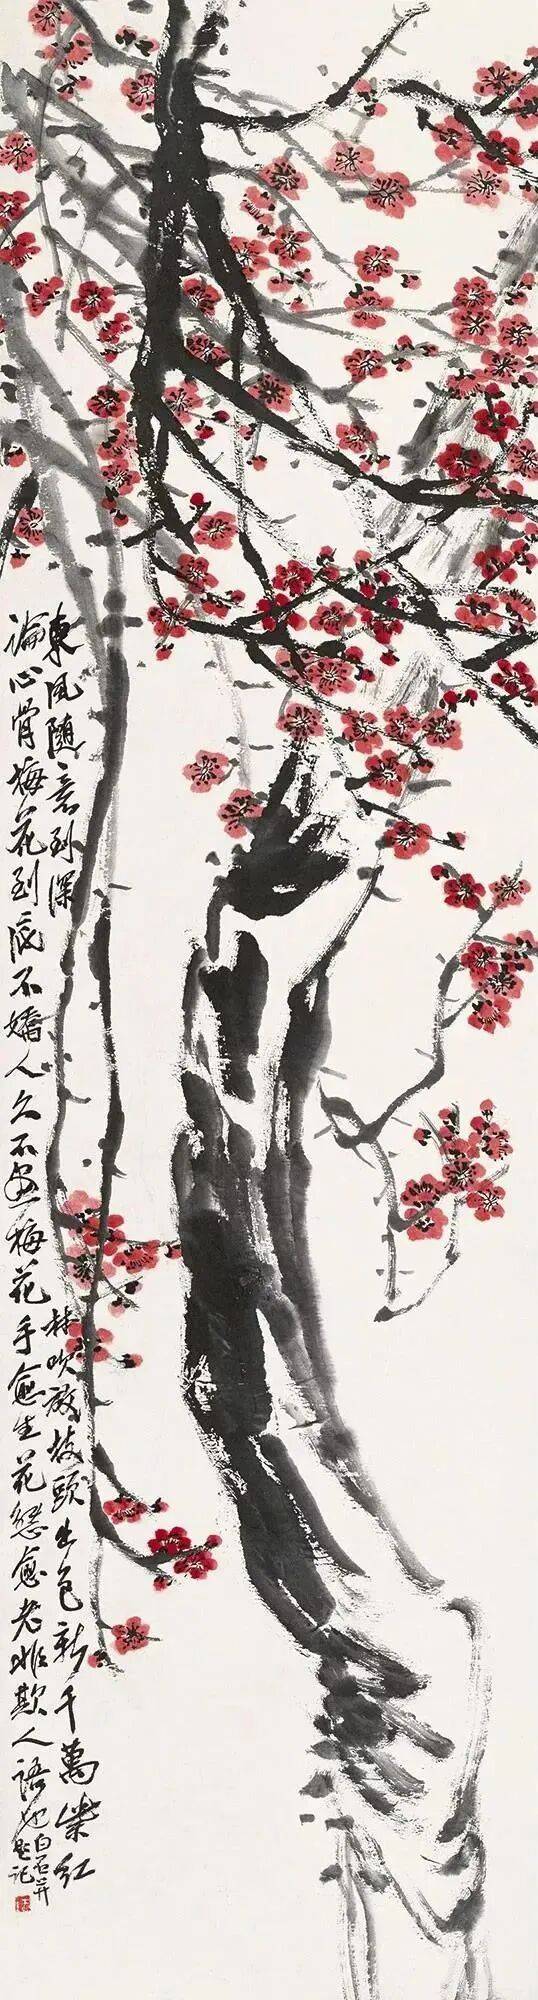 東風隨意到深林吹放枝頭出色新千萬紫紅
論心骨梅花到底不嬌人久不畫梅花手愈生花態愈老非欺人語也白石并
題記